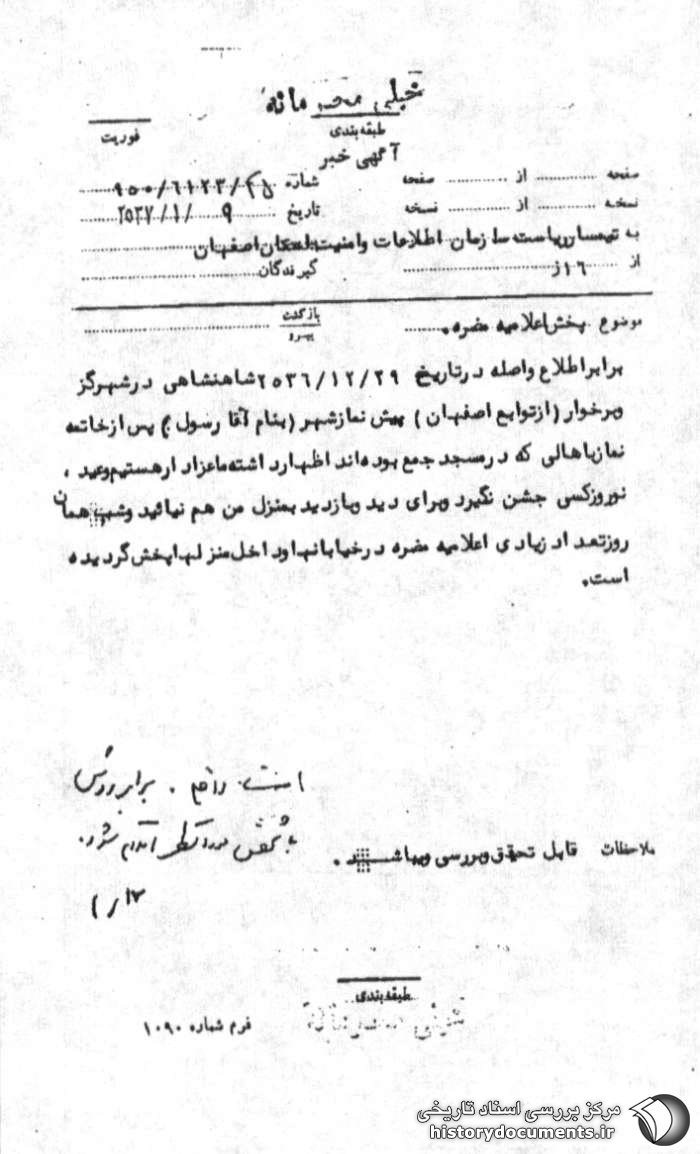 خیلی محرمانه
طبقه‌بندی
فوریت
آگهی خبر
صفحه از صفحه شماره
نسخه از نسخه تاریخ ۲۵۳۷/۱/۹
به تیمسار ریاست سازمان اطلاعات و امنیت استان اصفهان
از ۱۶ز گیرندگان
موضوع پخش اعلامیه مضره. بازگشت
پیرو
برابر اطلاع واصله در تاریخ ۲۵۳۶/۱۲/۲۹ شاهنشاهی در شهر گز
وبرخوار (از توابع اصفهان) پیش نماز شهر (بنام آقا رسول) پس از خاتمه
نماز باهالی که در مسجد جمع بوده‌اند اظهار داشته ما عزادار هستیم وعید ،
نوروز کسی جشن نگیرد وبرای دید وبازدید بمنزل من هم نیائید وشب همان
روز تعداد زیادی اعلامیه مضره در خیابانها وداخل منزلها پخش گردیده
است.
برابر
اقدام شود.
ملاحظات قابل تحقیق وبررسی میباشد.
۱/۱۷
طبقه‌بندی
فرم شماره ۱۰۹۰
مرکز بررسی اسناد تاریخی
historydocuments.ir